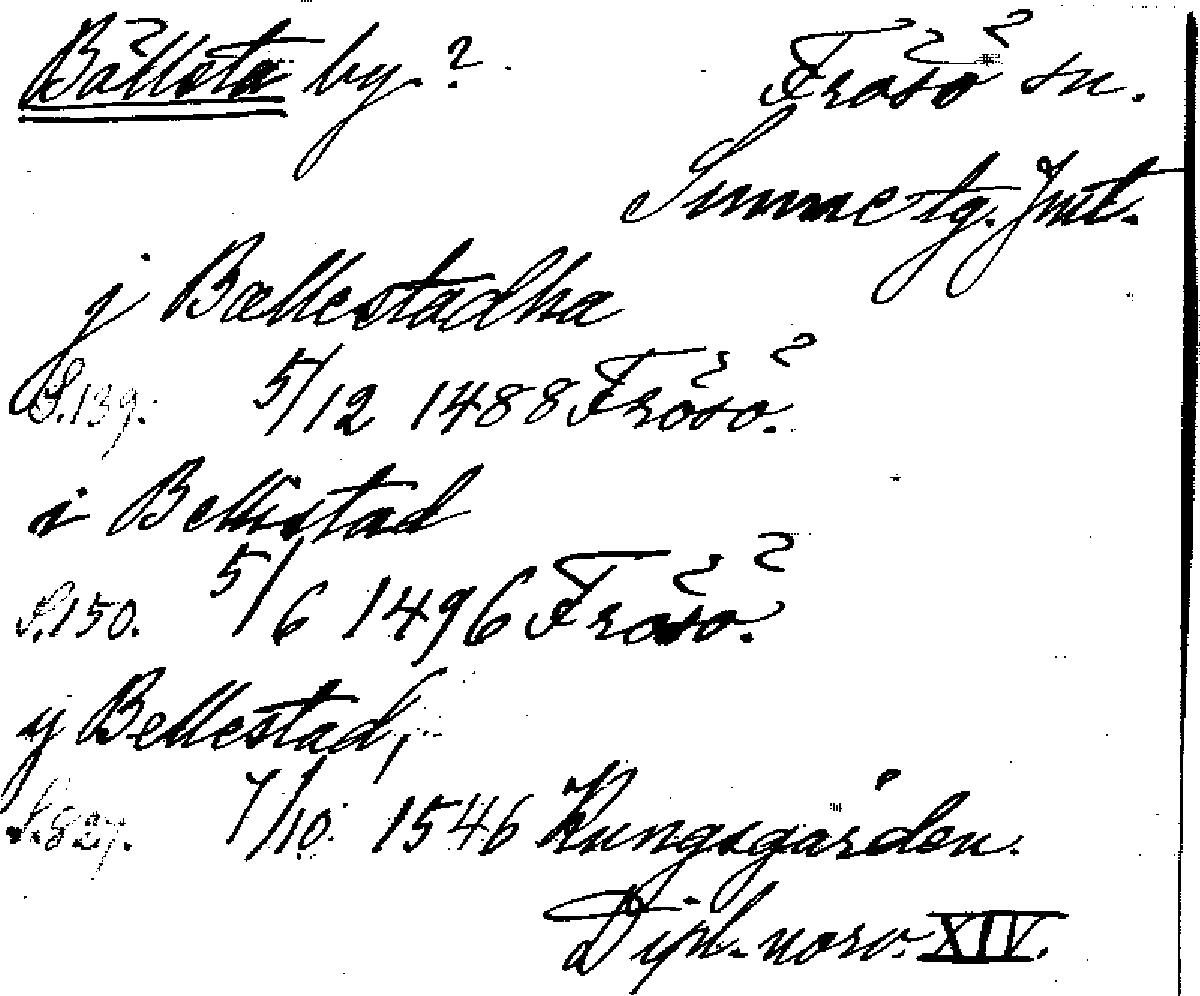 Bällsta by.? Frösö sn.
Sunne tg. Jmt.
j Bællestadha
S.139. 5/12 1488 Frösö.
i Bellistad
S.150. 5/6 1496 Frösö.
y Bellestad,
S.827. 7/10 1546 Kungsgården.
Dipl. norv. XIV.